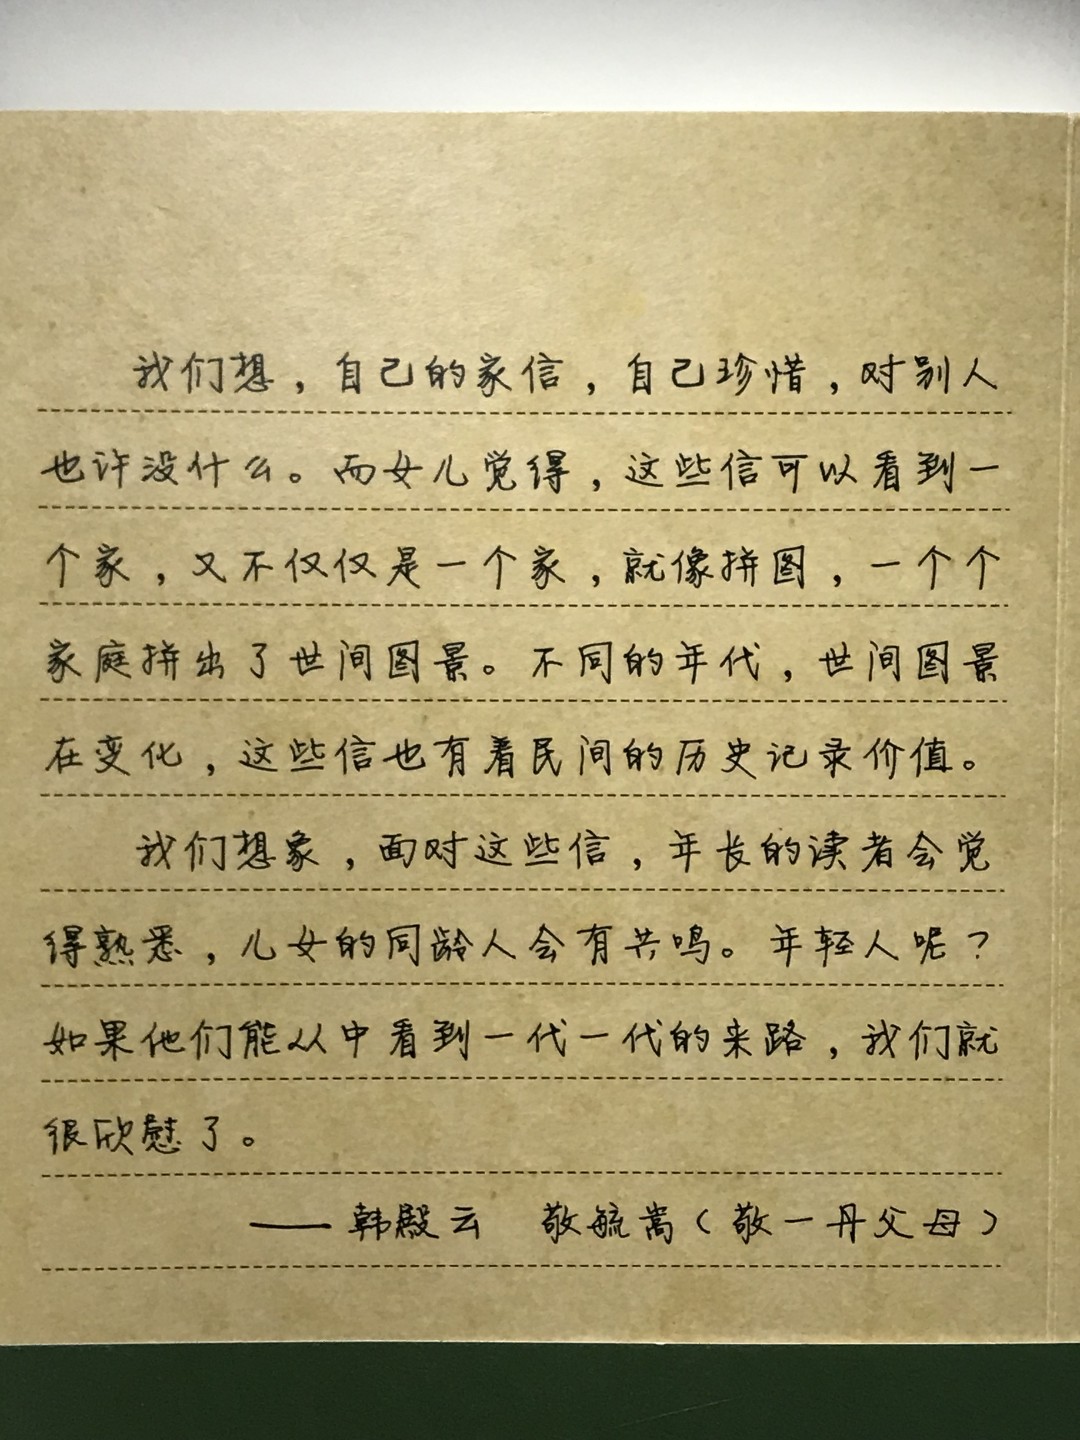 我们想，自己的家信，自己珍惜，对别人
也许没什么。而女儿觉得，这些信可以看到一
个家，又不仅仅是一个家，就像拼图，一个个
家庭拼出了世间图景。不同的年代，世间图景
在变化，这些信也有着民间的历史记录价值。
我们想象，面对这些信，年长的读者会觉
得熟悉，儿女的同龄人会有共鸣。年轻人呢？
如果他们能从中看到一代一代的来路，我们就
很欣慰了。
——韩殿云　敬毓嵩（敬一丹父母）